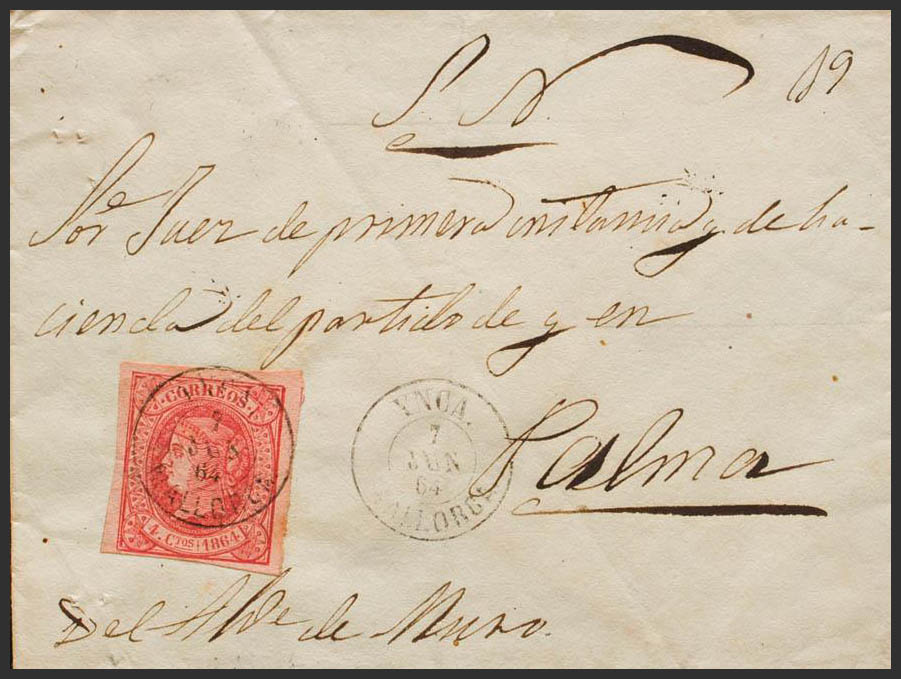 S. N.
19
Sor Juez de primera instancia y de ha-
cienda del partido de y en
Palma
CORREOS
4 CTOS 1864
JUN
64
MALLORCA
YNCA.
7
JUN
64
MALLORCA
Del Alde de Muro.